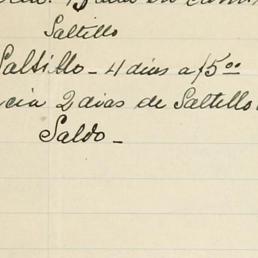 Saltillo
Saltillo - 4 dias a 15 00
cia 2 dias de Saltillo
Saldo -